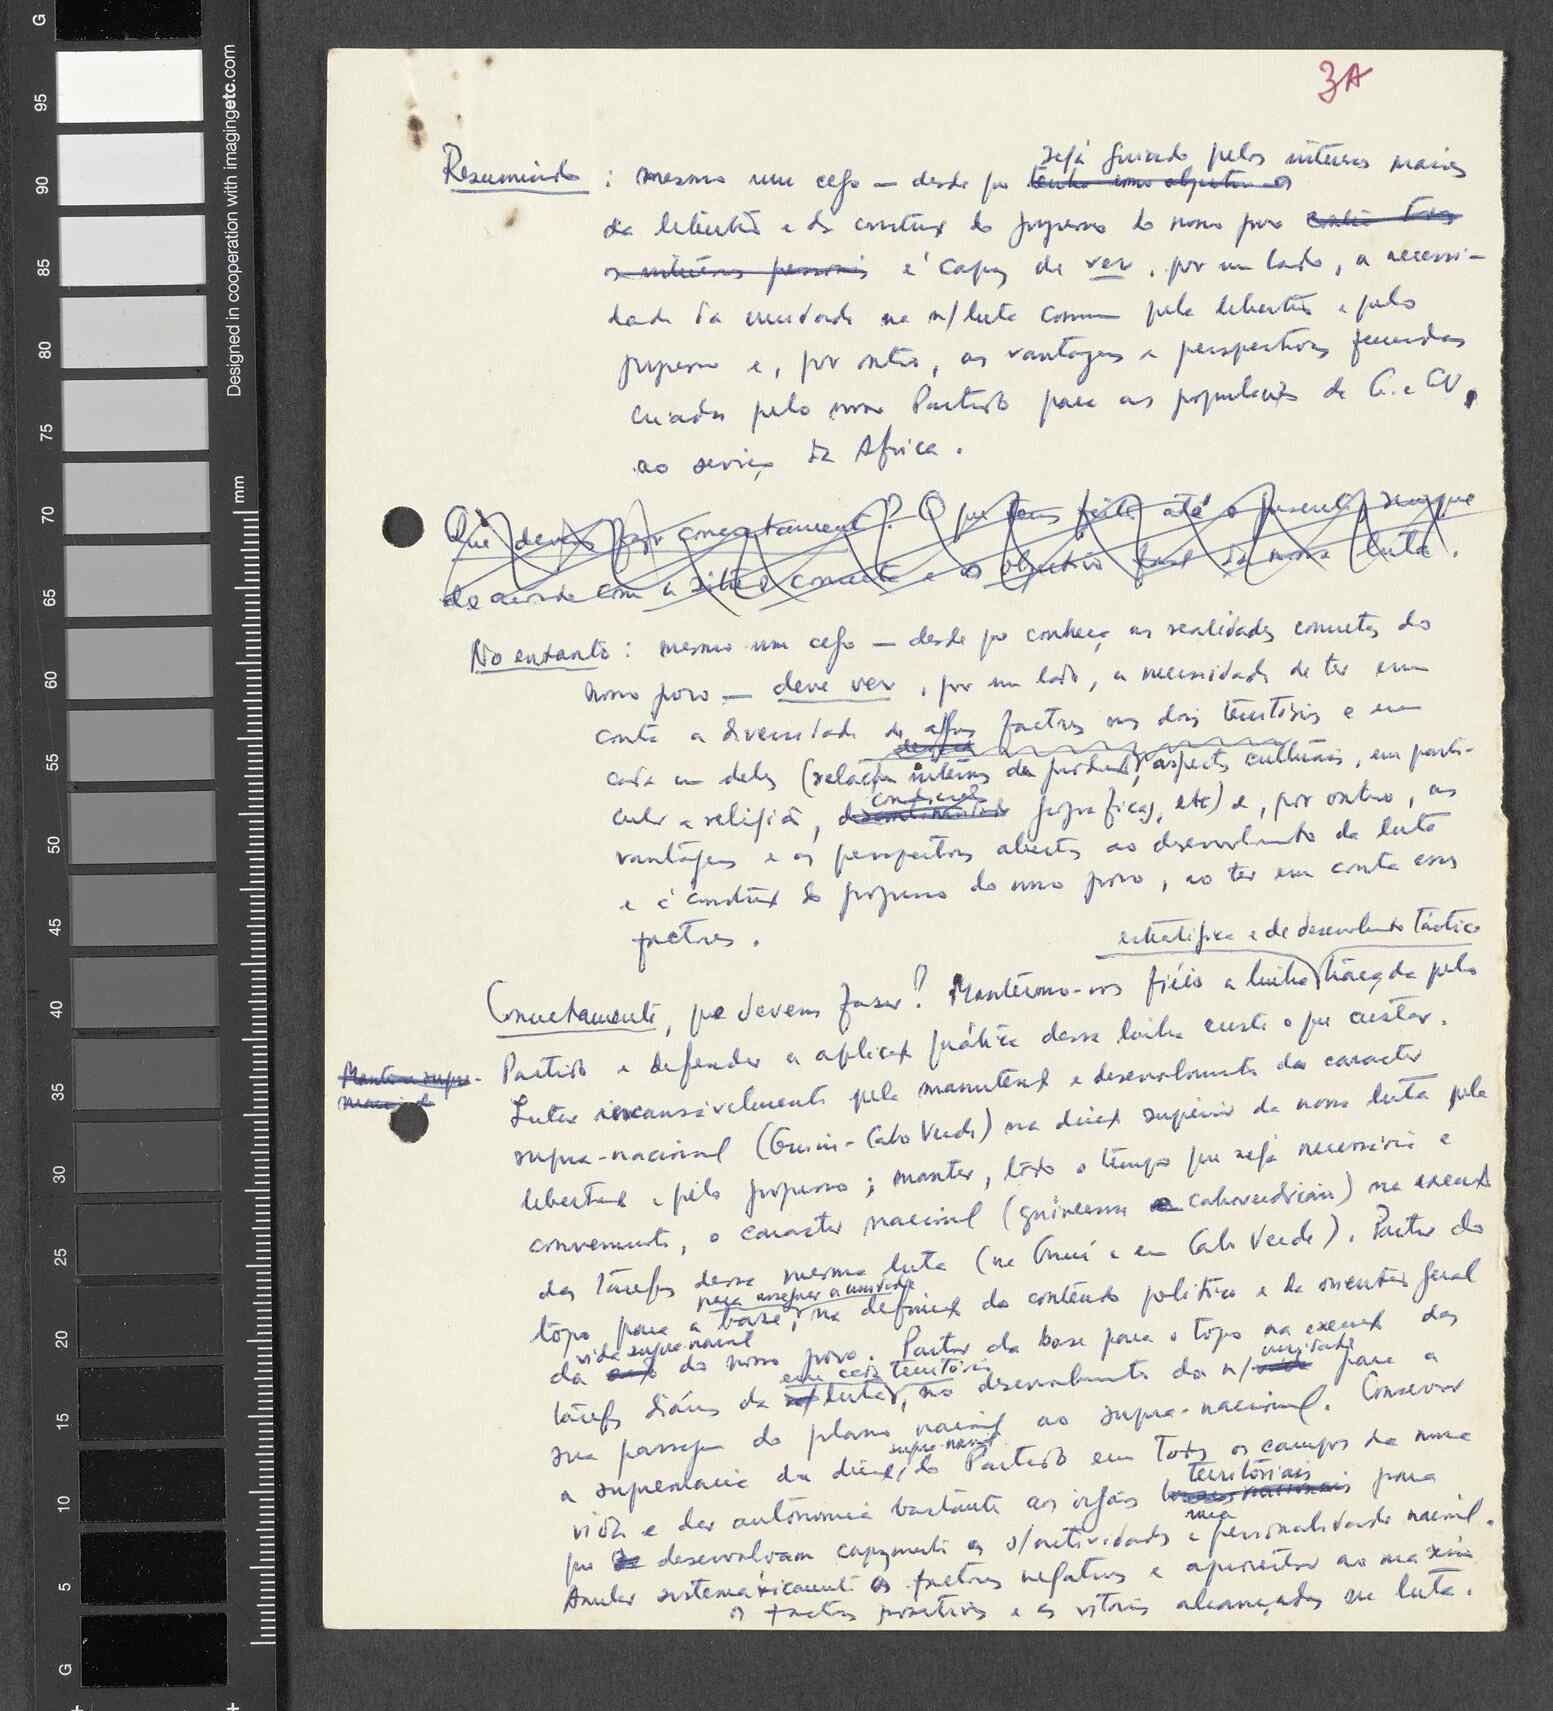 3A
Resumindo : mesmo um cego — desde que tenha como objectivo os seja guiado pelos interesses maiores
da libertação e da construção do progresso do nosso povo
os interesses pessoais é capaz de ver, por um lado, a necessi-
dade da unidade na n/ luta comum pela libertação e pelo
progresso e, por outro, as vantagens e perspectivas fecundas
criadas pelo nosso Partido para as populações da G. e CV,
ao serviço da Africa.
Que devemos fazer concretamente? O que temos feito até o presente, sempre
de acordo com a situação concreta e os objectivos da nossa luta.
No entanto : mesmo um cego — desde que conheça as realidades concretas do
nosso povo — deve ver, por um lado, a necessidade de ter em
conta a diversidade de alguns factores nos dois territórios e em
cada um deles (relações internas de produção, aspectos culturais, em parti-
cular a religião, condições geograficas, etc) e, por outro, as
vantagens e as perspectivas abertas ao desenvolvimento da luta
e à construção do progresso do nosso povo, ao ter em conta esses
factores.
estratégica e de desenvolvimento táctico
Concretamente, que devemos fazer? Mantermo-nos fiéis a linha traçada pelo
Partido e defender a aplicação prática dessa linha custe o que custar.
Manter a supre-
macia d
Lutar incansavelmente pela manutenção e desenvolvimento do caracter
supra-nacional (Guiné-Cabo Verde) na direcção superior da nossa luta pela
libertação e pelo progresso; manter, todo o tempo que seja necessário e
conveniente, o caracter nacional (guineense e caboverdiano) na execução
das tarefas dessa mesma luta (na Guiné e em Cabo Verde). Partir do
topo para a base, para assegurar a unidade, na definição do conteúdo politico e da orientação geral
da vida supra-nacional do nosso povo. Partir da base para o topo na execução das
tarefas diárias da luta em cada território, no desenvolvimento da n/ unidade para a
sua passagem do plano nacional ao supra-nacional. Conservar
a supremacia da direcção supra-nacional do Partido em todos os campos da nossa
vida e dar autonomia bastante aos órgãos territoriais nacionais para
que desenvolvam capazmente as s/ actividades e sua personalidade nacional.
Anular sistemáticamente os factores negativos e aproveitar ao maximo
os factores positivos e as vitorias alcançadas na luta.
Designed in cooperation with imagingetc.com
mm
G
95
90
85
80
75
70
65
60
55
50
45
40
35
30
25
20
15
10
5
G